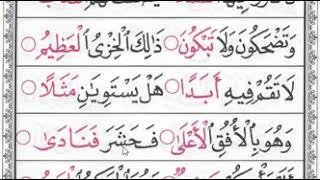 وَتَضْحَكُونَ وَلَا تَبْكُونَ ذَالِكَ الْخِزْىُ الْعَظِيمُ
لَا تَقُمْ فِيهِ أَبَدًا هَلْ يَسْتَوِيَٰنِ مَثَلًا
وَهُوَ بِالْأُفُقِ الْأَعْلَىٰ فَحَشَرَ فَنَادَىٰ